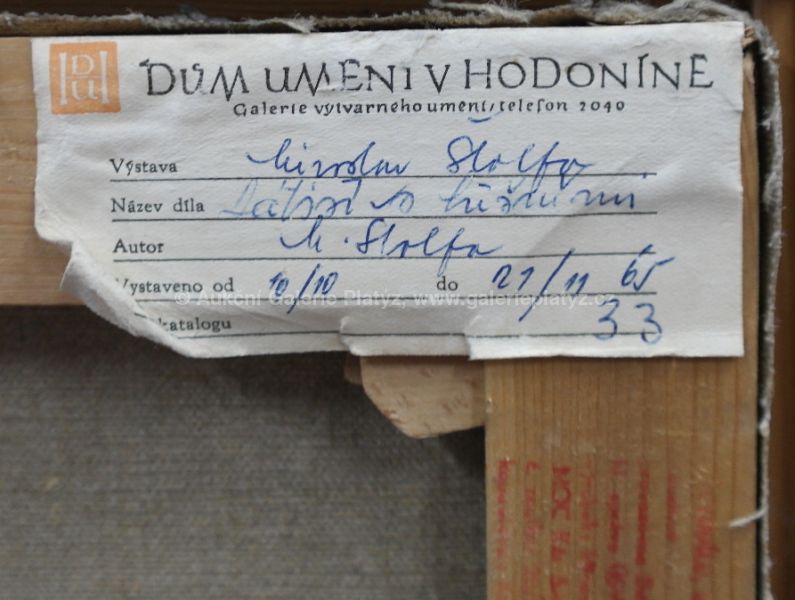 DU
DŮM UMĚNÍ V HODONÍNĚ
Galerie výtvarného umění, telefon 2040
Výstava Miroslav Štolfa
Název díla Zátiší s
Autor M. Štolfa
Vystaveno od 10/10 do 21/11 65
katalogu 33
© Aukční Galerie Platýz, www.galerieplatyz.cz